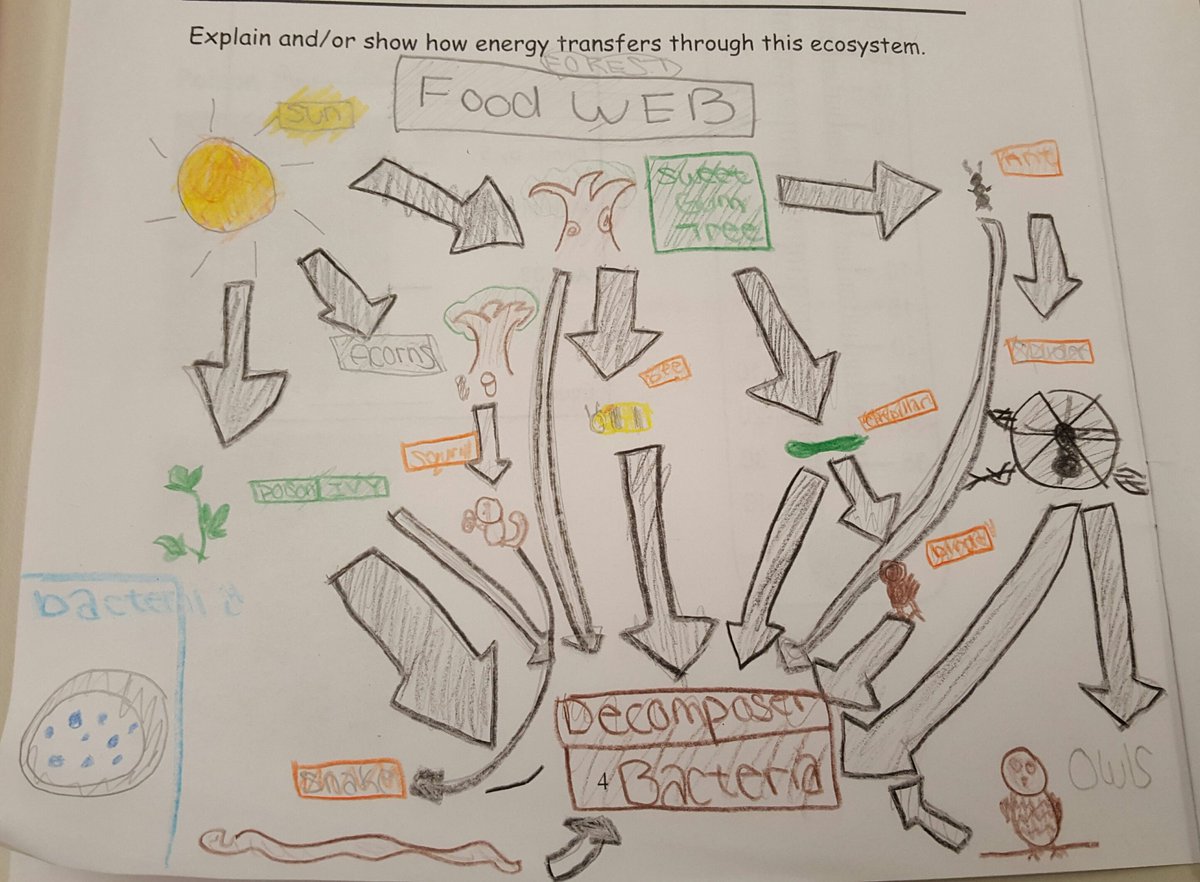 Explain and/or show how energy transfers through this ecosystem.
FOREST
Food WEB
Sun
Sweet
Gum
Tree
Ant
Acorns
Bee
Spider
POISON IVY
bacteria
Decomposer
4 Bacteria
Snake
Owls